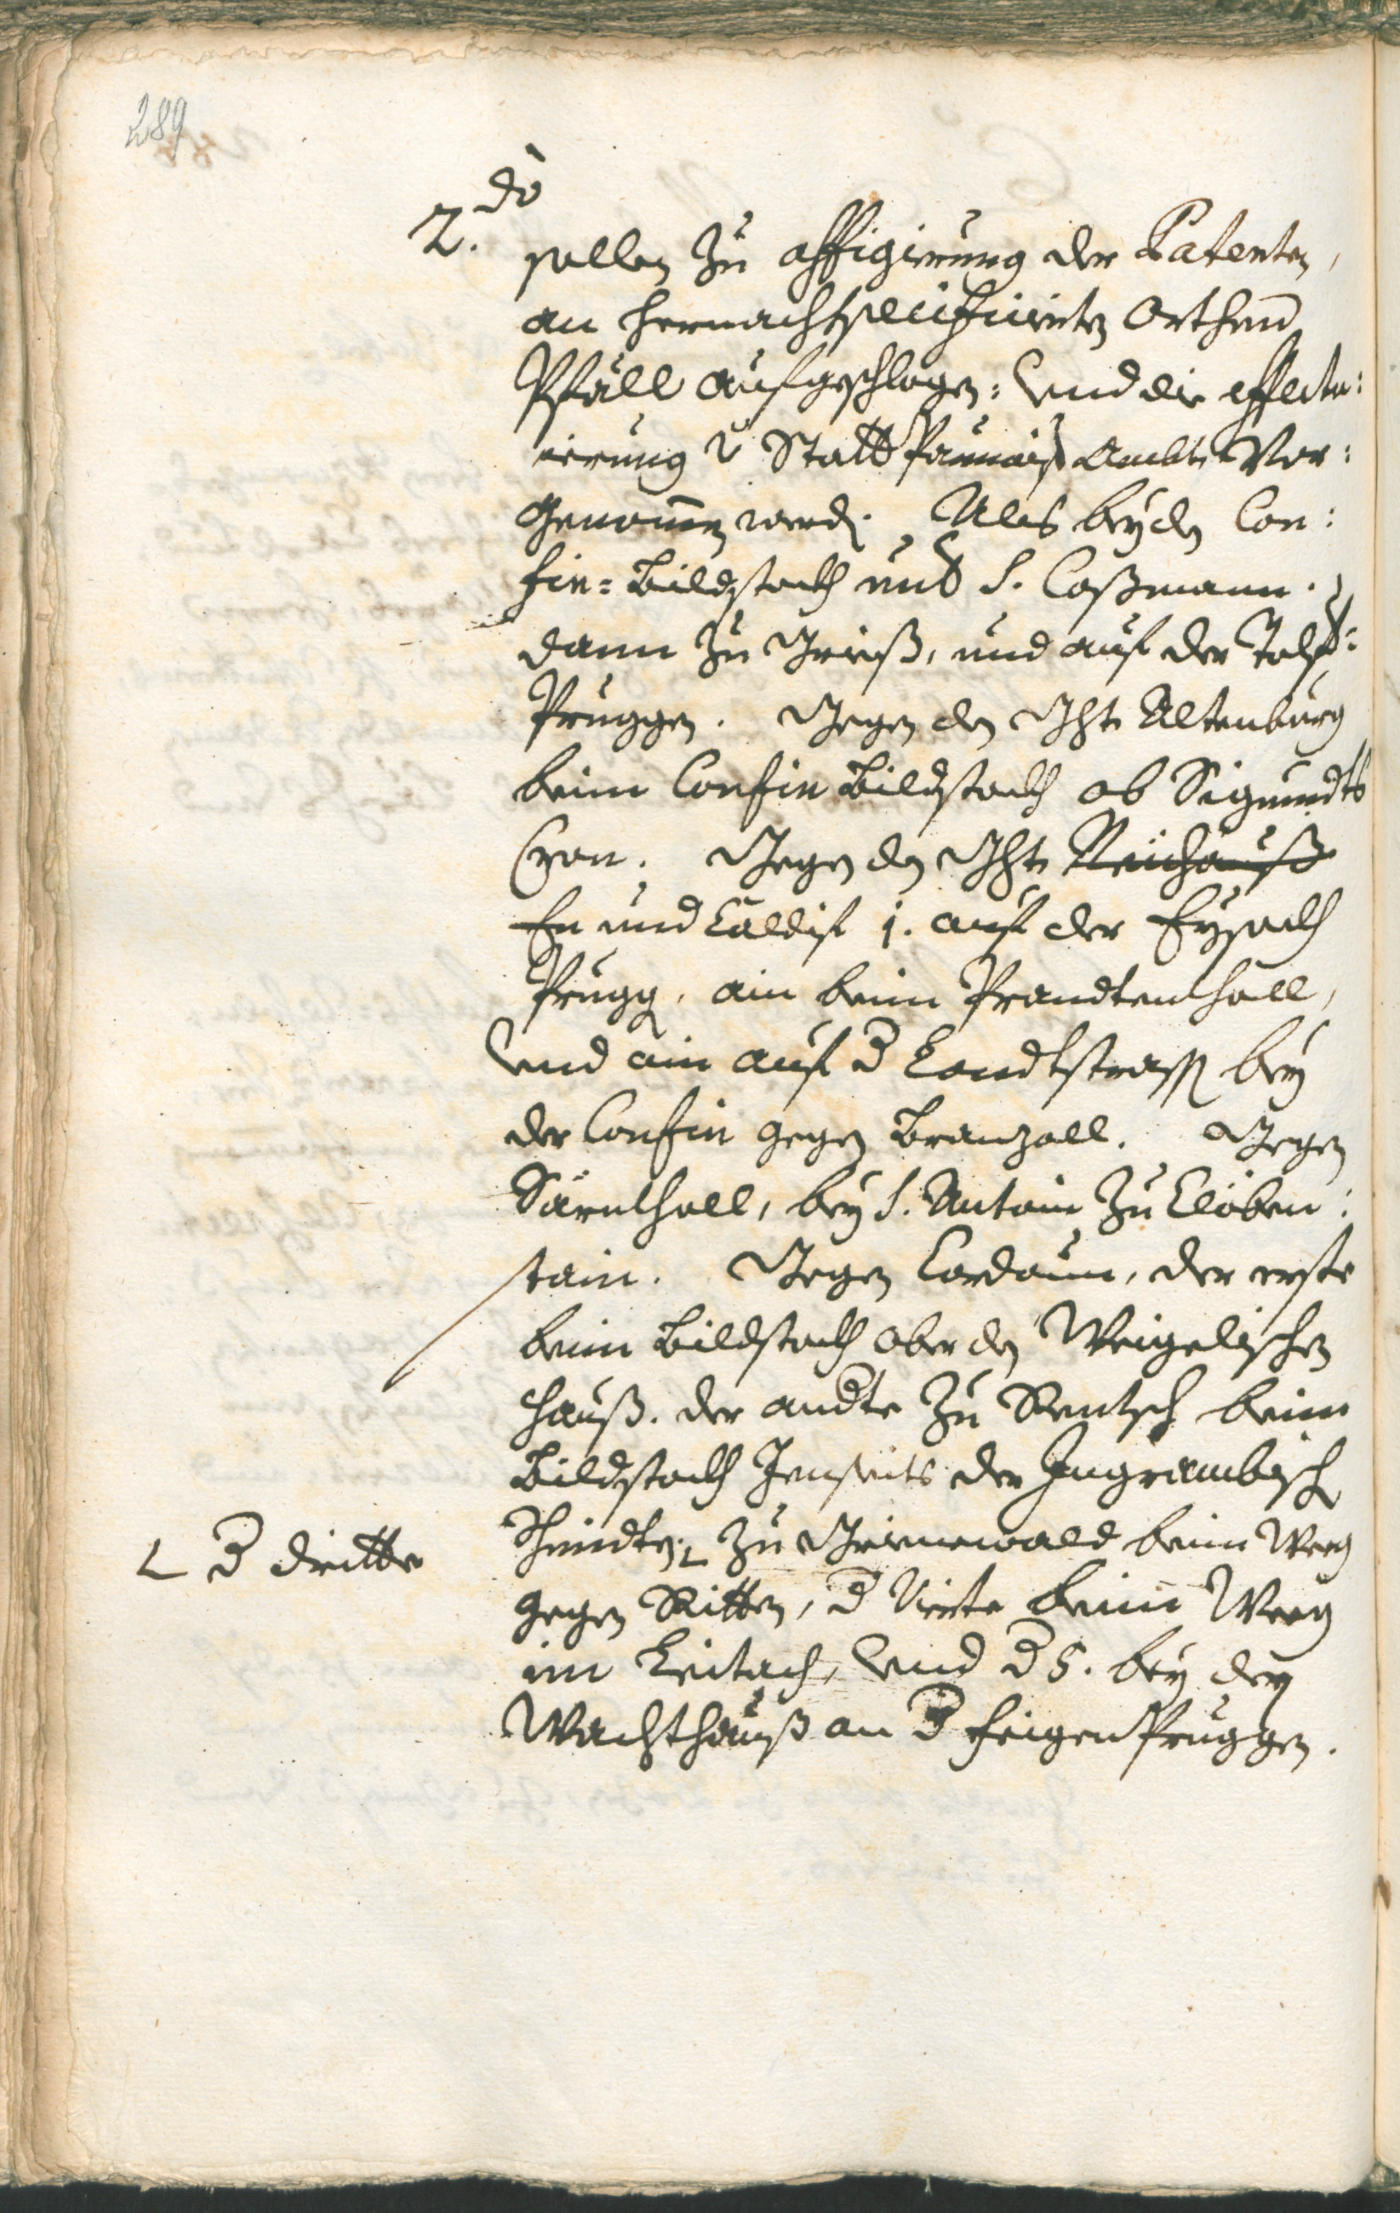 289
2. do
sollen zu affigierung der Patenten,
an hernachspecificirten Orthen
Pfäll aufgeschlagen: Vnd die effectu:
ierung v Statt Paumaist Ambt Vor:
genomen werd. Als beÿ dn Con:
fin= Bildstockh und S. Coßmann.
dann zu Grieß, und auf der Talf=
Pruggen. Gegen dn Ght Altenburg
beim Confin Bildstockh ob Sigmundts
Cron. Gegen dn Ght Neuhauß
En und Caldif 1. auf der Eysackh
Prugg, ain beim Prandtenthall,
Vnd ain auf d Landtstrass beÿ
der Confin gegen Branzoll. Gegen
Särnthall, beÿ S. Antoni zu Cloben:
stain. Gegen Cardaun, der erste
beim Bildstockh ober dn Weigelischen
Hauß. der andte zu Rentsch beim
Bildstockh Jenseits der Ingrambisch
Hündten, L zu Griennwald beim Weeg
L d dritte
gegen Ritten, d Vierte beim Weeg
im Leitach, Vnd d 5. beÿ den
Wachthauß an d feigen Pruggen.